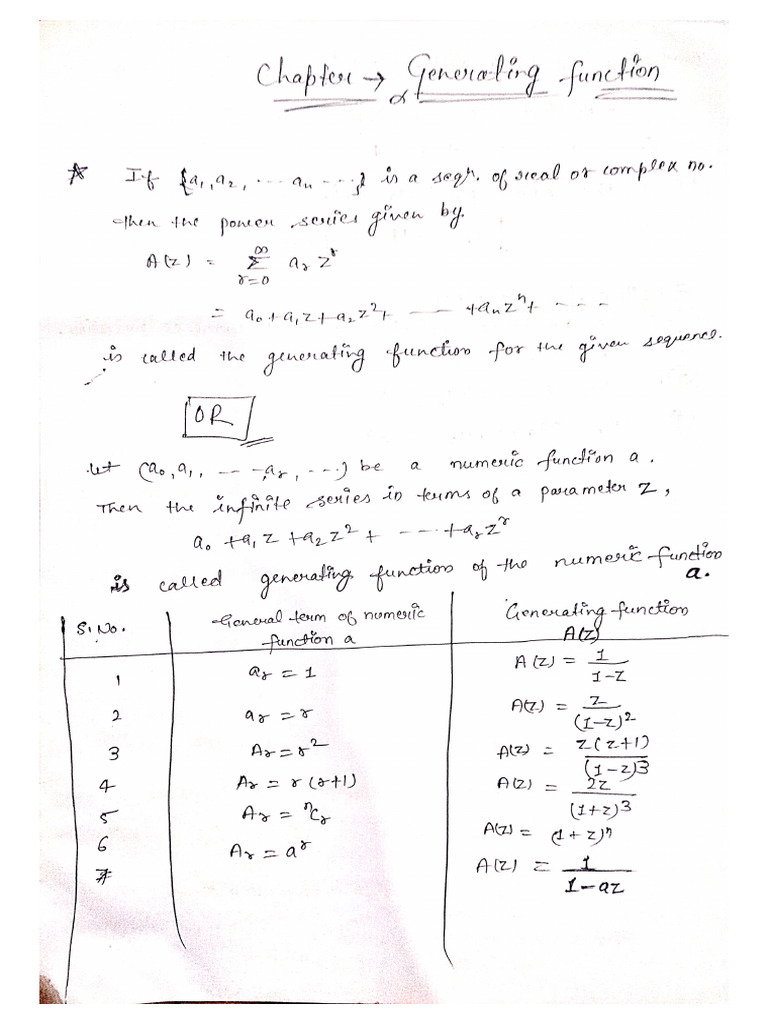 Chapter → Generating function
* If {a₁, a₂, ---- aₙ ----} is a seqⁿ. of real or complex no.
then the power series given by.
A(z) = ∞∑r=0 aᵣ zʳ
= a₀ + a₁z + a₂z² + ---- + aₙzⁿ + ---
is called the generating function for the given sequence.
OR
Let (a₀, a₁, --- aᵣ, ---) be a numeric function a.
Then the infinite series in terms of a parameter z,
a₀ + a₁z + a₂z² + ---- + aᵣzʳ
is called generating function of the numeric function a.
S.No. General term of numeric function a Generating function A(z)
1 aᵣ = 1 A(z) = 1/(1-z)
2 aᵣ = r A(z) = z/(1-z)²
3 Aᵣ = r² A(z) = z(z+1)/(1-z)3
4 Aᵣ = r(r+1) A(z) = 2z/(1+z)3
5 Aᵣ = ⁿCᵣ A(z) = (1+z)ⁿ
6 Aᵣ = aʳ A(z) = 1/(1-az)
7